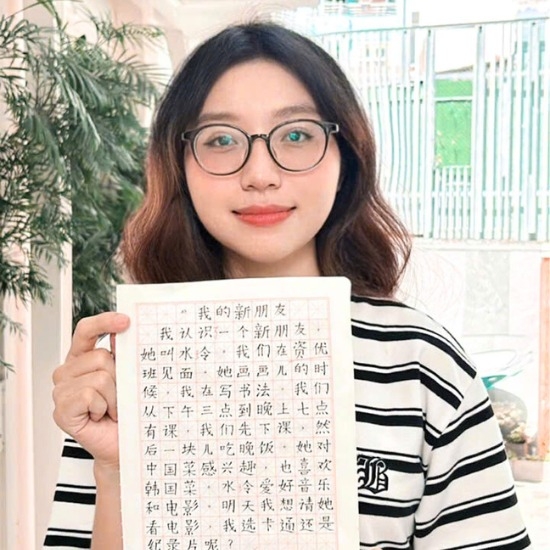 “我的新朋友
我认识一个新朋友，
她叫水令，我们在资优
班见面，她画画儿的时
候，我在写书法，我们
从下午三点到晚上七点
有课，我们先下课，然
后一块儿吃晚饭，她对
中国菜感兴趣，也喜欢
韩国菜，水令爱好音乐
和电影，明天我想请她
看电影，我选卡通还是
纪录片呢？
B